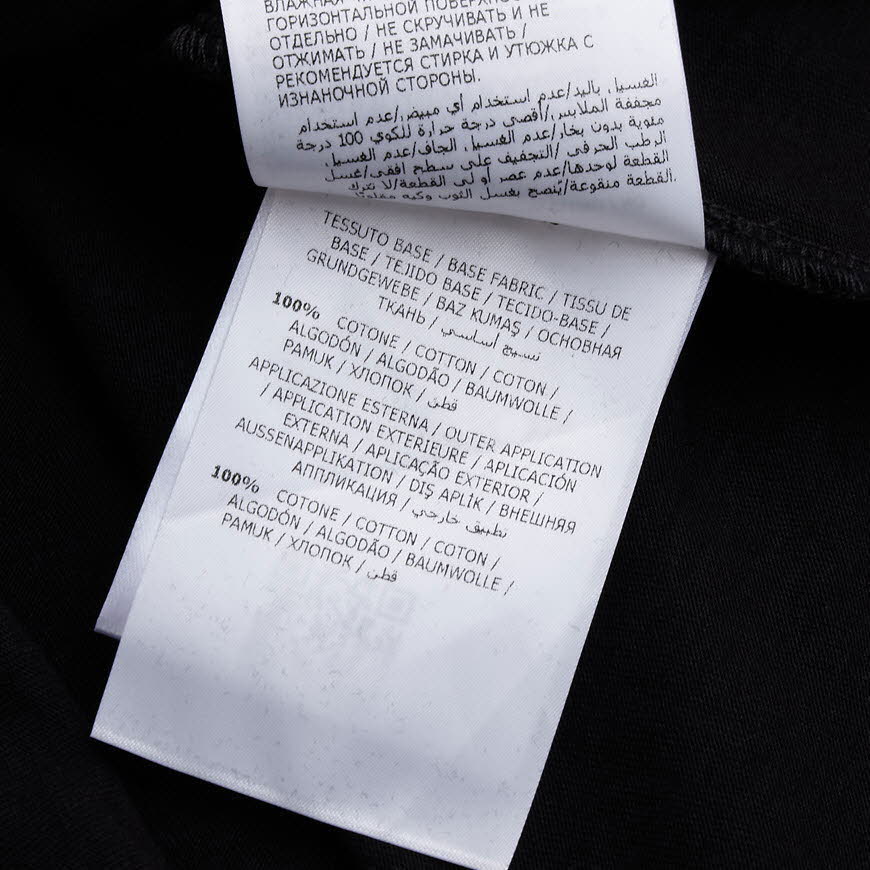 ВЛАЖНАЯ
ГОРИЗОНТАЛЬНОЙ ПОВЕРХНОСТИ
ОТДЕЛЬНО / НЕ СКРУЧИВАТЬ И НЕ
ОТЖИМАТЬ / НЕ ЗАМАЧИВАТЬ /
РЕКОМЕНДУЕТСЯ СТИРКА И УТЮЖКА С
ИЗНАНОЧНОЙ СТОРОНЫ.
الغسيل باليد/عدم استخدام أي مبيض/عدم استخدام
مجففة الملابس/أقصى درجة حرارة للكوي 100 درجة
مئوية بدون بخار/عدم الغسيل الجاف/عدم الغسيل
الرطب الحرفي/التجفيف على سطح أفقي/غسل
القطعة لوحدها/عدم عصر أو لي القطعة/لا تترك
القطعة منقوعة/يُنصح بغسل الثوب وكيه مقلوبًا.
TESSUTO BASE / BASE FABRIC / TISSU DE
BASE / TEJIDO BASE / TECIDO-BASE /
GRUNDGEWEBE / BAZ KUMAŞ / ОСНОВНАЯ
ТКАНЬ / نسيج أساسي
100% COTONE / COTTON / COTON /
ALGODÓN / ALGODÃO / BAUMWOLLE /
PAMUK / ХЛОПОК / قطن
APPLICAZIONE ESTERNA / OUTER APPLICATION
/ APPLICATION EXTERIEURE / APLICACIÓN
EXTERNA / APLICAÇÃO EXTERIOR /
AUSSENAPPLIKATION / DIŞ APLİK / ВНЕШНЯЯ
АППЛИКАЦИЯ / تطبيق خارجي
100% COTONE / COTTON / COTON /
ALGODÓN / ALGODÃO / BAUMWOLLE /
PAMUK / ХЛОПОК / قطن